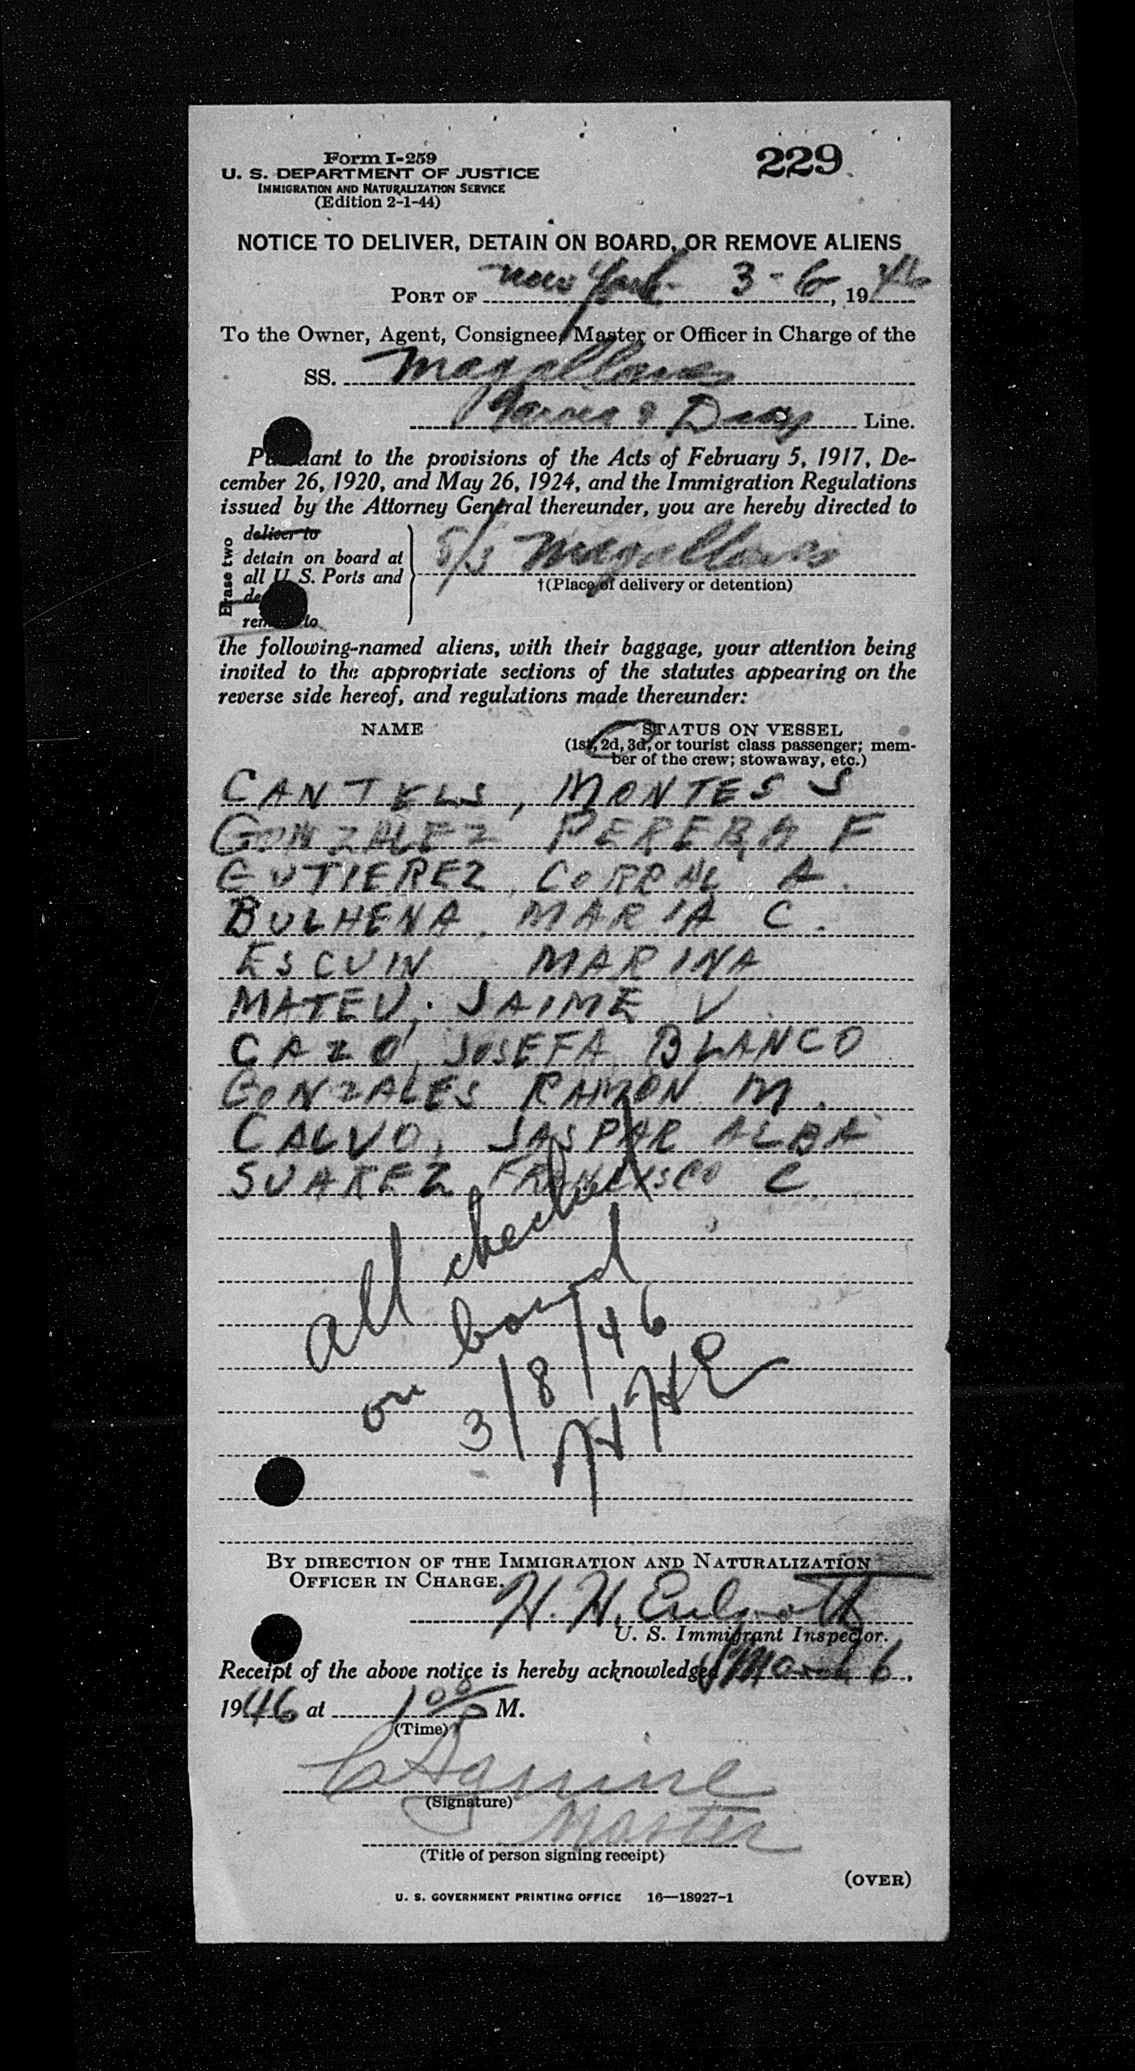 Form I-259
229
U. S. DEPARTMENT OF JUSTICE
IMMIGRATION AND NATURALIZATION SERVICE
(Edition 2-1-44)
NOTICE TO DELIVER, DETAIN ON BOARD, OR REMOVE ALIENS
PORT OF New York 3-6, 1946
To the Owner, Agent, Consignee, Master or Officer in Charge of the
SS. Magallanes
Garcia & Diaz Line.
Pursuant to the provisions of the Acts of February 5, 1917, De-
cember 26, 1920, and May 26, 1924, and the Immigration Regulations
issued by the Attorney General thereunder, you are hereby directed to
Erase two
deliver to
detain on board at
all U. S. Ports and
remove to
S/S Magallanes
†(Place of delivery or detention)
the following-named aliens, with their baggage, your attention being
invited to the appropriate sections of the statutes appearing on the
reverse side hereof, and regulations made thereunder:
NAME
STATUS ON VESSEL
(1st, 2d, 3d, or tourist class passenger; mem-
ber of the crew; stowaway, etc.)
CANTELS, MONTES S
GONZALEZ PERERA F
GUTIEREZ, CORRAL A.
BULHENA, MARIA C.
ESCUIN MARINA
MATEU, JAIME V
CAZO, JOSEFA BLANCO
GONZALES RAMON M.
CALVO, JASPAR ALBA
SUAREZ FRANCISCO C
all checked
on board
3/8/46
HHE
BY DIRECTION OF THE IMMIGRATION AND NATURALIZATION
OFFICER IN CHARGE.
H. H.
U. S. Immigrant Inspector.
Receipt of the above notice is hereby acknowledged March 6,
1946 at 1 00 P M.
(Time)
(Signature)
Master
(Title of person signing receipt)
(OVER)
U. S. GOVERNMENT PRINTING OFFICE 16—18927-1